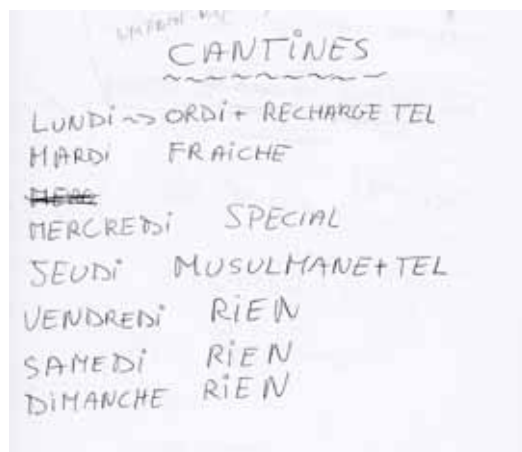 CANTINES
LUNDi ~> ORDi + RECHARGE TEL
MARDi FRAiCHE
MERC
MERCREDi SPECiAL
JEUDi MUSULMANE + TEL
VENDREDi RiEN
SAMEDi RiEN
DiMANCHE RiEN